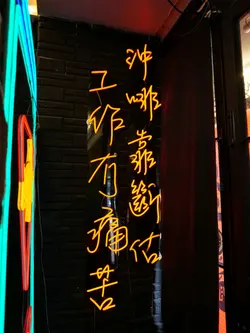 沖啡靠斷估
工作有痛苦